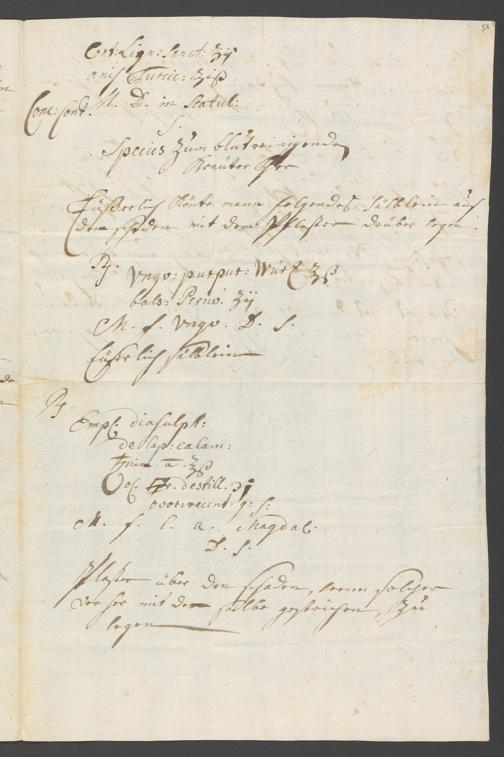 Cort: Lign: Sanct: ʒij
anis
Conc: Cont: M. D. in Scatul:
S.
Species zum blutreinigenden
Kräuter Thee
Äußerlich könte mann folgendes Sälblein auf
den schaden mit dem Pflaster darüber legen:
Rx:
Ungv: purpur: Würtz ʒß
bals: Peruv. ʒij
M. f. Ungv. D. S.
Äußerlich sälblein
Rx.
Empl: diasulph:
de lap: calam:
āā ʒß
destill.
ovor: recent: q: s:
M. f. l. a. Magdal:
D. S.
Pflaster über den schaden, wenn solcher
vorher mit der salbe gestrichen, zu
legen